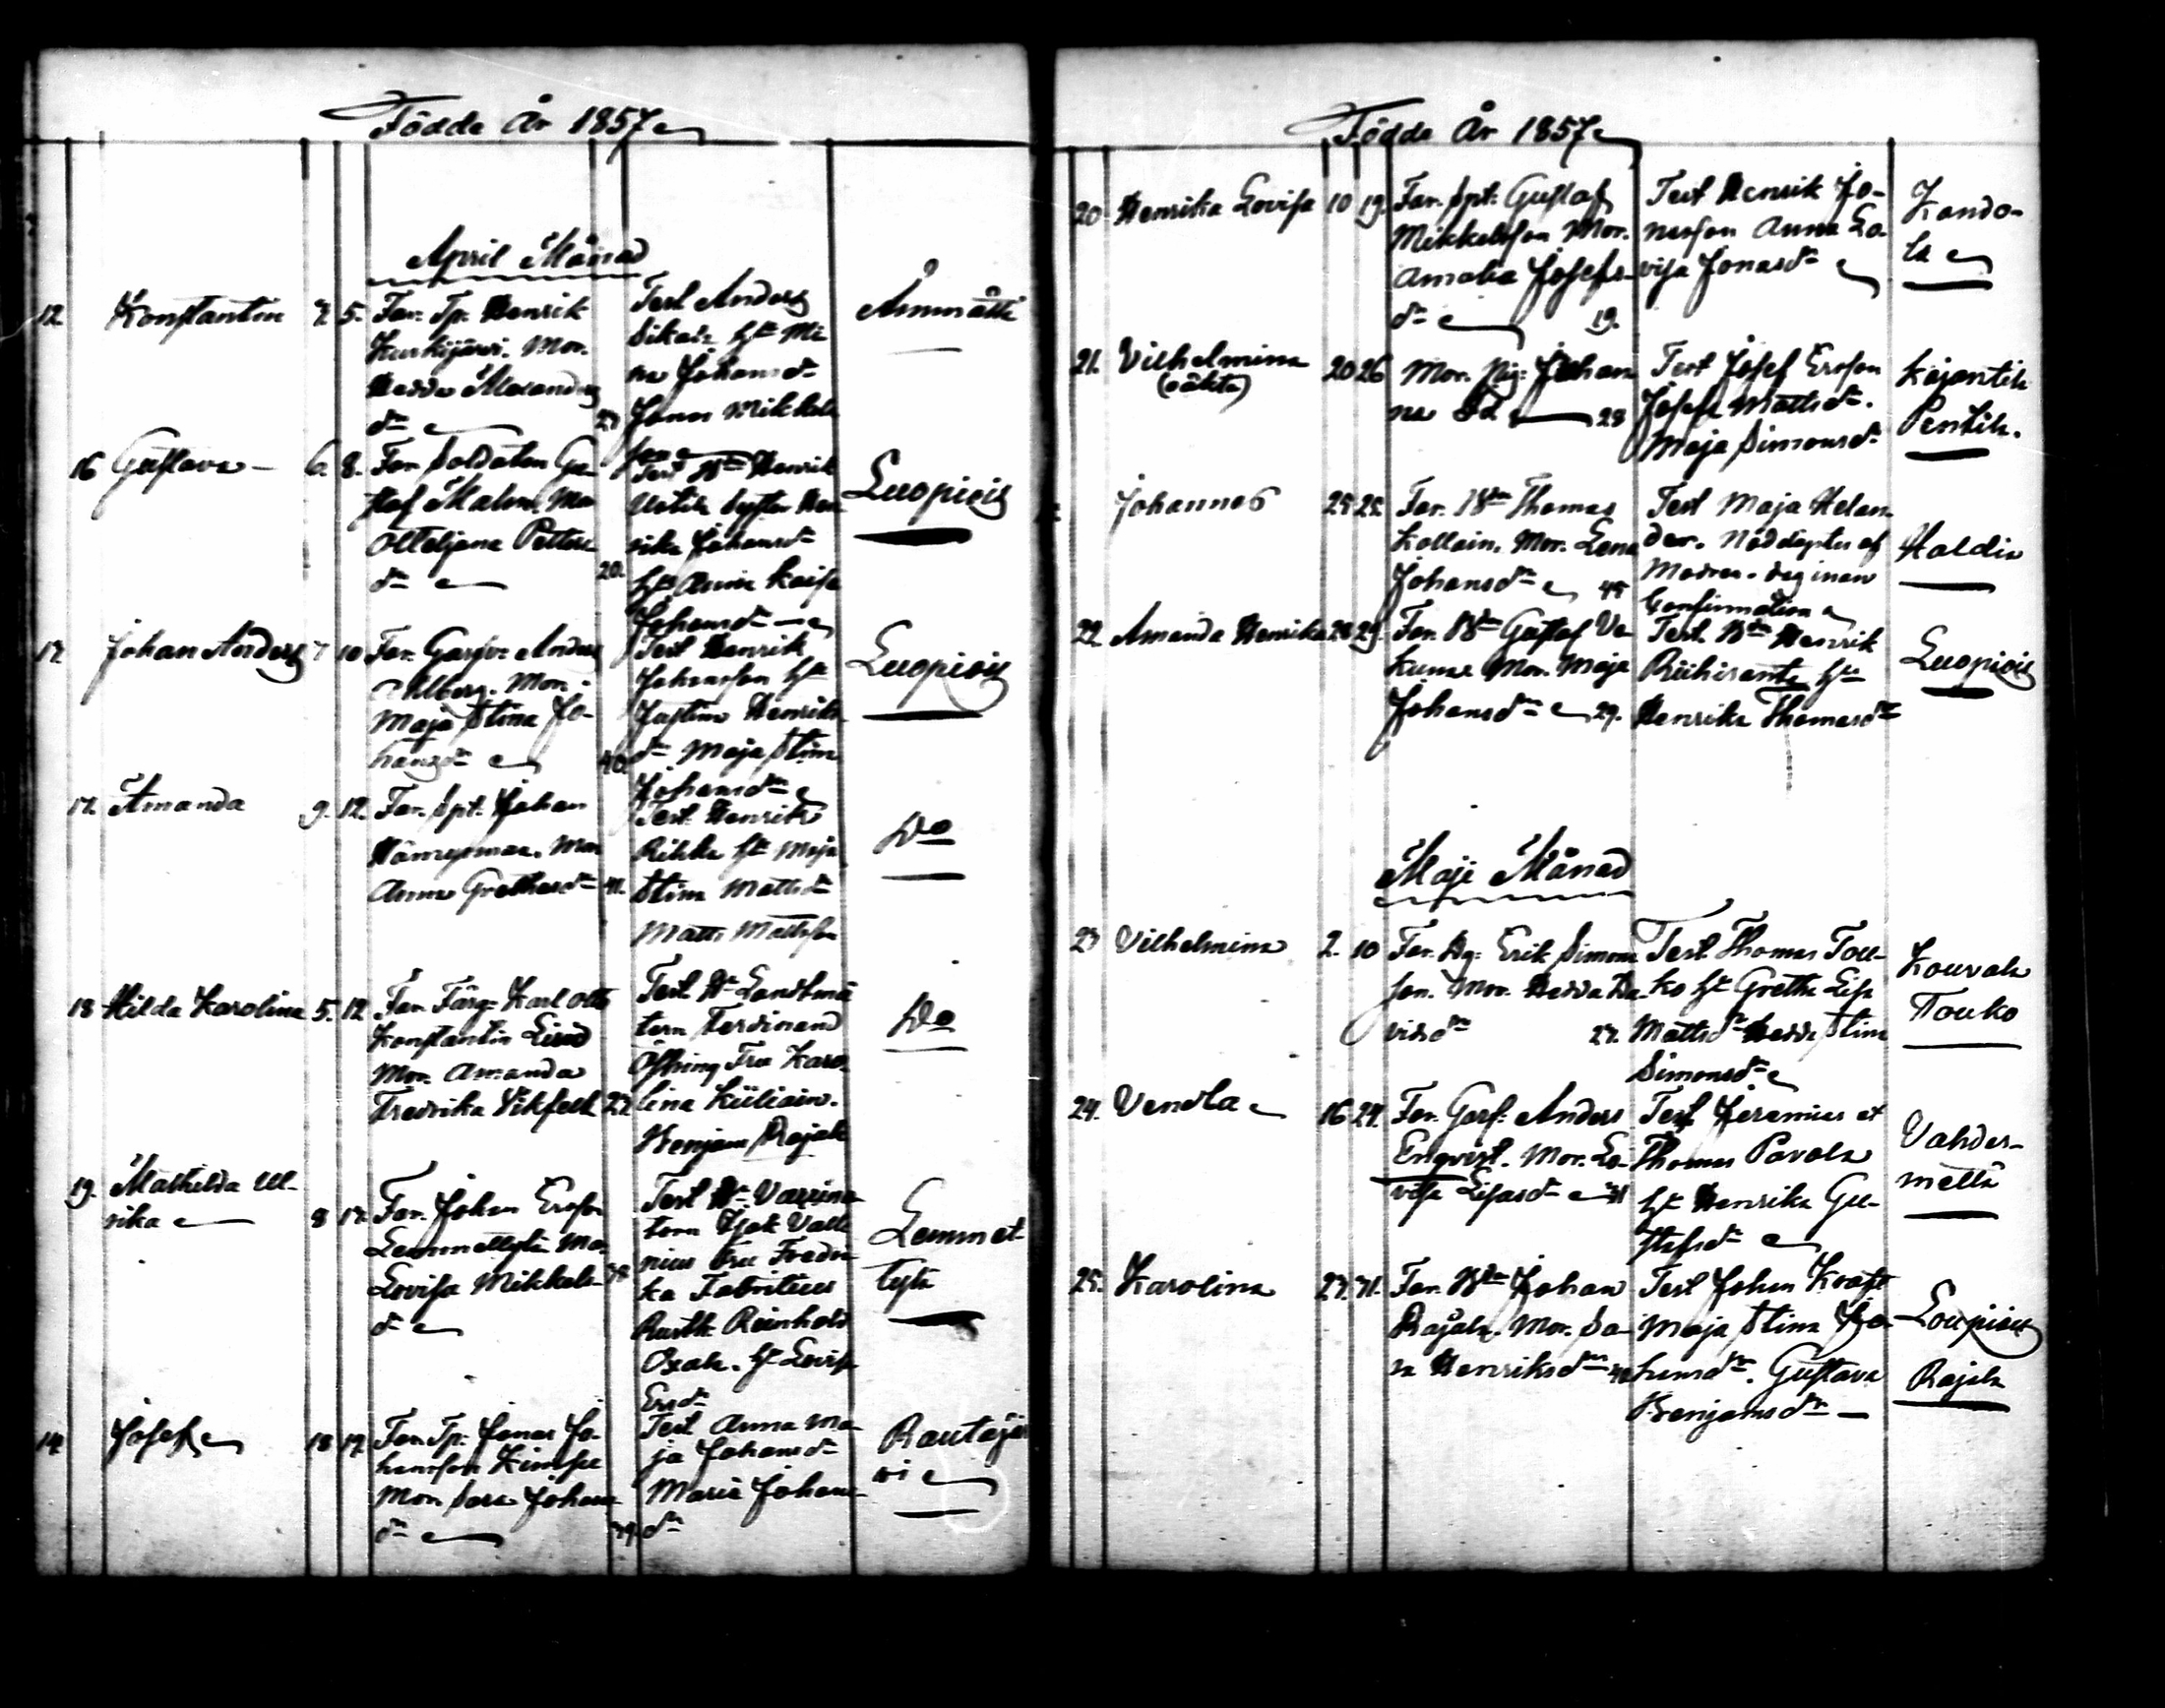 Födde År 1857
April Månad
12 Konstantin 5. Far. Tp. Henrik
Kurkijärvi. Mor.
Hedda Alexanders
dr
Test Anders
Sikala Hr Mi
na Johansdr
Jonas Mikkels
son
Ammätti
16 Gustava 6. 8. Far Soldaten Gu
staf Malm. Mor
Ottiljana Petters
dr 20.
Test Bdn Henrik
Uotila Syster Hen
rika Johansdr
Hr Anna Kaisa
Johansdr
Luopiois
Johan Anders 7 10 Far. Garfv. Anders
Ahlberg. Mor.
Maja Stina Jo-
hansdr 40.
Test Henrik
Johansson Hr
Justina Henriks
dr Maja Stina
Johansdr
Luopiois
17. Amanda 9. 12. Far. Spt. Johan
Mor
Anna Grethasdr 41.
Test. Henrik
Rikka Hr Maja
Stina Mattsdr
Matts Mattsson
Do
18 Hilda Karolina 5. 12 Far Färg. Karl Otto
Konstantin Lind
Mor. Amanda
Fredrika Vikfelt
Test. Hr Landtmä
tern Ferdinand
Fru Karo
lina
Benjam Rajala
Do
19. Mathilda Ul-
rika 8 17. Far. Johan Ersson
Lemmettylä Mor
Lovisa Mikkels
dr
Test Hr
torn Isak Valle
nius Fru Fredri
ka Fabritius
Rustb. Reinhold
Oxala. Hr Lovisa
Ersdr
Lemmet
tylä
14 Josef 18 19. Far. Tp. Jonas Jo-
hansson
Mor Sara Johans
dr 39.
Test Anna Ma
ja Johansdr
Maria Johans
dr
Rautajär
vi
Födde År 1857
20 Henrika Lovisa 10 19. Far. Spt. Gustaf
Mikkelsson Mor.
Amalia Josefs-
dr 19.
Test Henrik Jo-
nasson Anna Lo
visa Jonasdr
Kando-
la
21. Vilhelmina 20 26
(oäkta)
Mor. Pig: Johan
na 28
Test Josef Ersson
Josefa Mattsdr.
Maja Simonsdr
Kajantila
Pentila.
Johannes 25 25. Far. Bdn Thomas
Kollain. Mor. Lena
Johansdr 45
Test Maja Helan
der. Nöddöptes af
Modren. dog innan
Confirmation
Haldia
22. Amanda Henrika 28 29. Far. Bdn Gustaf Ve
kuna Mor. Maja
Johansdr 29.
Test. Bdn Henrik
Riihiranta Hr
Henrika Thomasdr
Luopiois
Maji Månad
23 Vilhelmina 2. 10 Far. Dg: Erik Simons
son. Mor. Hedda Da
vidsdr 27.
Test Thomas Tou-
ko Hr Gretha Lisa
Mattsdr Hedda Stina
Simonsdr
Kouvala
Touko
24. Vendla 16 24. Far. Garf. Anders
Enqvist. Mor. Lo-
visa Lisasdr 31
Test Jeremias et
Thomas Pavola
Hr Henrika Gu-
stafsdr
Vahder-
mettä
25. Karolina 27. 31. Far. Bdn Johan
Rajala. Mor. Sa-
ra Henriksdr
Test Johan Kraft
Maja Stina Jo-
hansdr. Gustava
Benjamsdr
Loupiois
Rajala